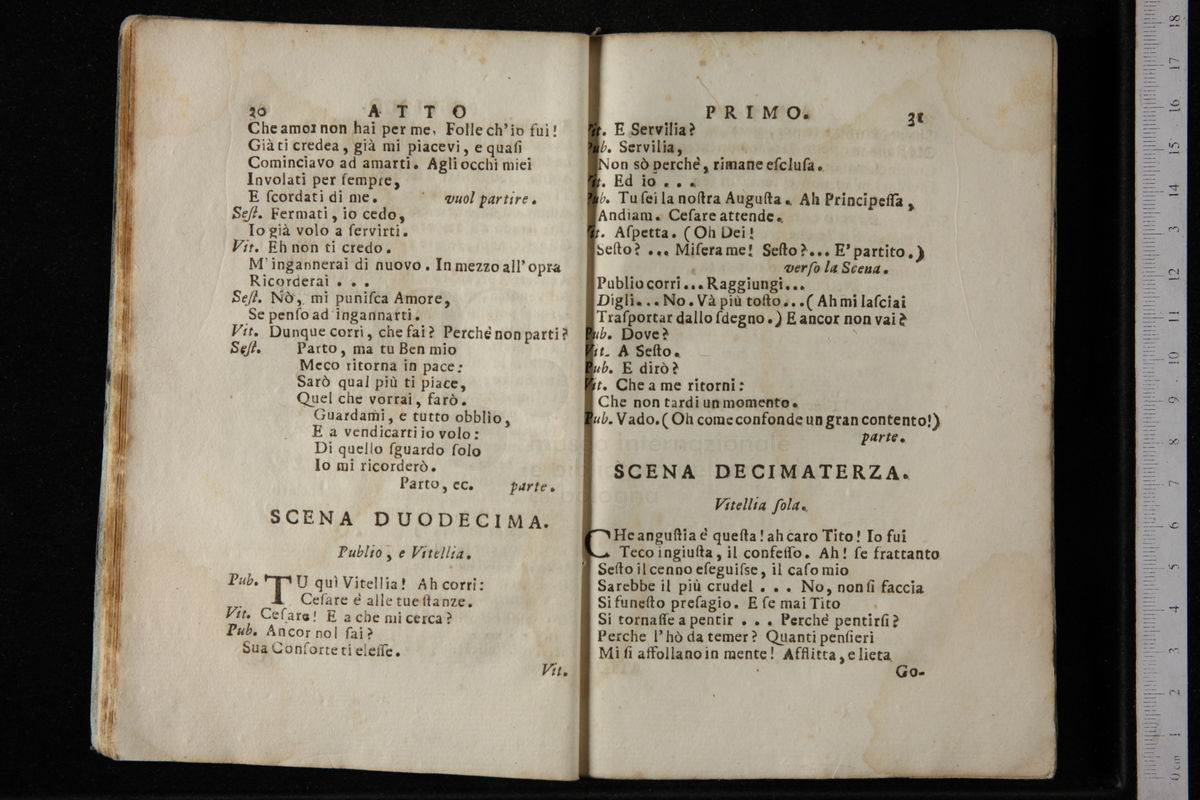 30 ATTO
Che amor non hai per me. Folle ch'io fui!
Già ti credea, già mi piacevi, e quaſi
Cominciavo ad amarti. Agli occhi miei
Involati per ſempre,
E ſcordati di me. vuol partire.
Seſt. Fermati, io cedo,
Io già volo a ſervirti.
Vit. Eh non ti credo.
M'ingannerai di nuovo. In mezzo all'opra
Ricorderai . . .
Seſt. Nò, mi puniſca Amore,
Se penſo ad ingannarti.
Vit. Dunque corri, che fai? Perchè non parti?
Seſt. Parto, ma tu Ben mio
Meco ritorna in pace:
Sarò qual più ti piace,
Quel che vorrai, farò.
Guardami, e tutto obblio,
E a vendicarti io volo:
Di quello ſguardo ſolo
Io mi ricorderò.
Parto, ec. parte.
SCENA DUODECIMA.
Publio, e Vitellia.
Pub. TU quì Vitellia! Ah corri:
Ceſare è alle tue ſtanze.
Vit. Ceſare! E a che mi cerca?
Pub. Ancor nol ſai?
Sua Conſorte ti eleſſe.
Vit.
PRIMO. 31
Vit. E Servilia?
Pub. Servilia,
Non sò perchè, rimane eſcluſa.
Vit. Ed io . . .
Pub. Tu ſei la noſtra Auguſta. Ah Principeſſa,
Andiam. Ceſare attende.
Vit. Aſpetta. (Oh Dei!
Seſto? ... Miſera me! Seſto?... E' partito.)
verſo la Scena.
Publio corri... Raggiungi...
Digli... No. Và più toſto...(Ah mi laſciai
Traſportar dallo ſdegno.) E ancor non vai?
Pub. Dove?
Vit. A Seſto.
Pub. E dirò?
Vit. Che a me ritorni:
Che non tardi un momento.
Pub. Vado. (Oh come confonde un gran contento!)
parte.
museo internazionale
e biblio
bologna
SCENA DECIMATERZA.
Vitellia ſola.
CHe anguſtia è queſta! ah caro Tito! Io fui
Teco ingiuſta, il confeſſo. Ah! ſe frattanto
Seſto il cenno eſeguiſse, il caſo mio
Sarebbe il più crudel . . . No, non ſi faccia
Si funeſto preſagio. E ſe mai Tito
Si tornaſſe a pentir . . . Perchè pentirſi?
Perche l'hò da temer? Quanti penſieri
Mi ſi affollano in mente! Afflitta, e lieta
Go-
18
17
16
15
14
13
12
11
10
9
8
7
6
5
4
3
2
1
0 cm